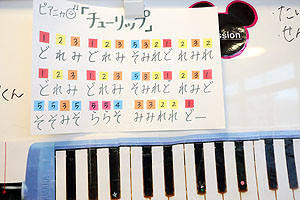 ピアニカ「チューリップ」
1 2 3 1 2 3 5 3 2 1 2 3 2
どれみ どれみ そみれどれみれ
1 2 3 1 2 3 5 3 2 1 2 3 1
どれみ どれみ そみれどれみど
5 5 3 5 6 6 5 3 3 2 2 1
そそみそ ららそ みみれれ どー
ssion
くん
たい
せん